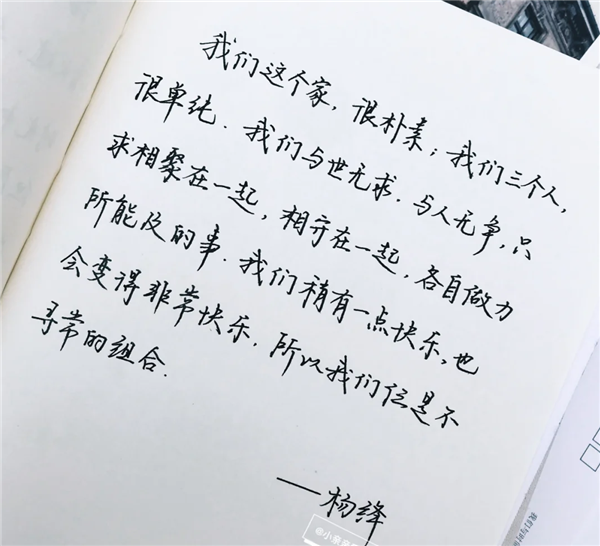 我们这个家，很朴素；我们三个人，
很单纯．我们与世无求．与人无争，只
求相聚在一起，相守在一起，各自做力
所能及的事．我们稍有一点快乐，也
会变得非常快乐．所以我们仨是不
寻常的组合．
——杨绛
@小泉
我们与时